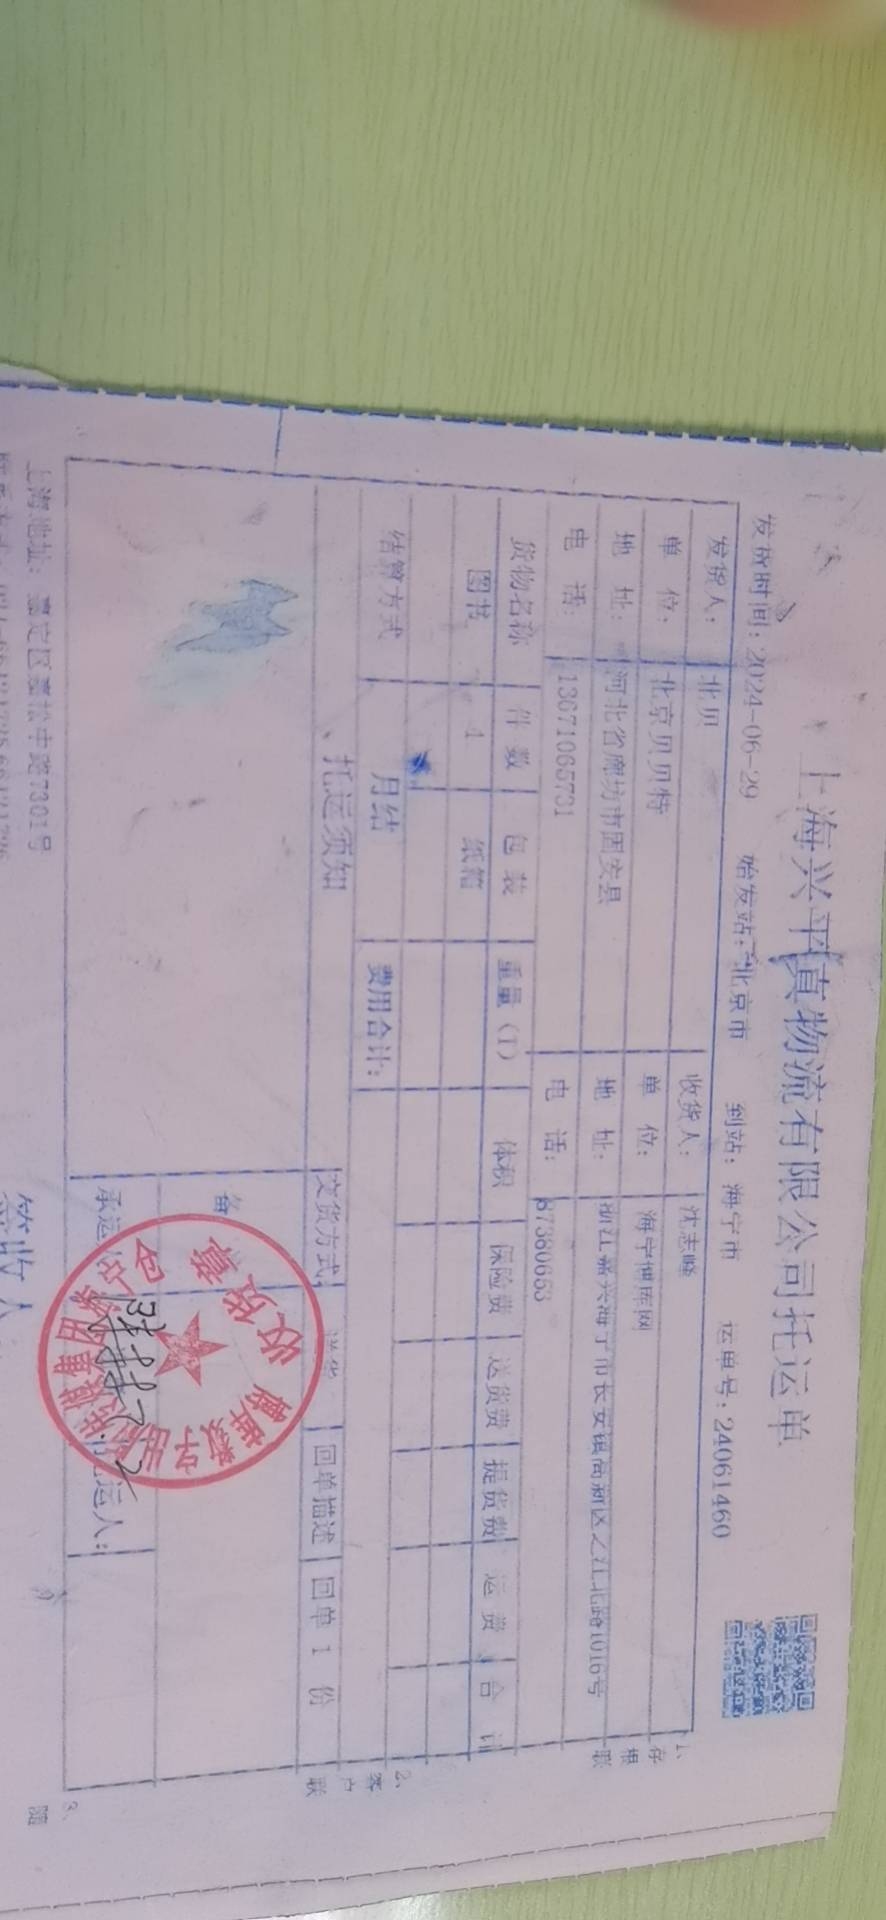 上海兴平真物流有限公司托运单
发货时间: 2024-06-29 始发站: 北京市 到站: 海宁市 运单号: 24061460
发货人: 北贝 收货人: 沈志峰
单 位: 北京贝贝特 单 位: 海宁博库网
地 址: 河北省廊坊市固安县 地 址: 浙江嘉兴海宁市长安镇高新区之江北路1016号
电 话: 13671065731 电 话: 87380653
货物名称 件 数 包 装 重量(T) 体积 保险费 送货费 提货费 运 费 合 计
图书 4 纸箱
结算方式 月结 费用合计:
托运须知 交货方式: 送货 回单描述 回单 1 份
备
承运 托运人:
收货章
上海地址: 嘉定区嘉松中路7301号
签收人
1、存根联
2、客户联
3、随